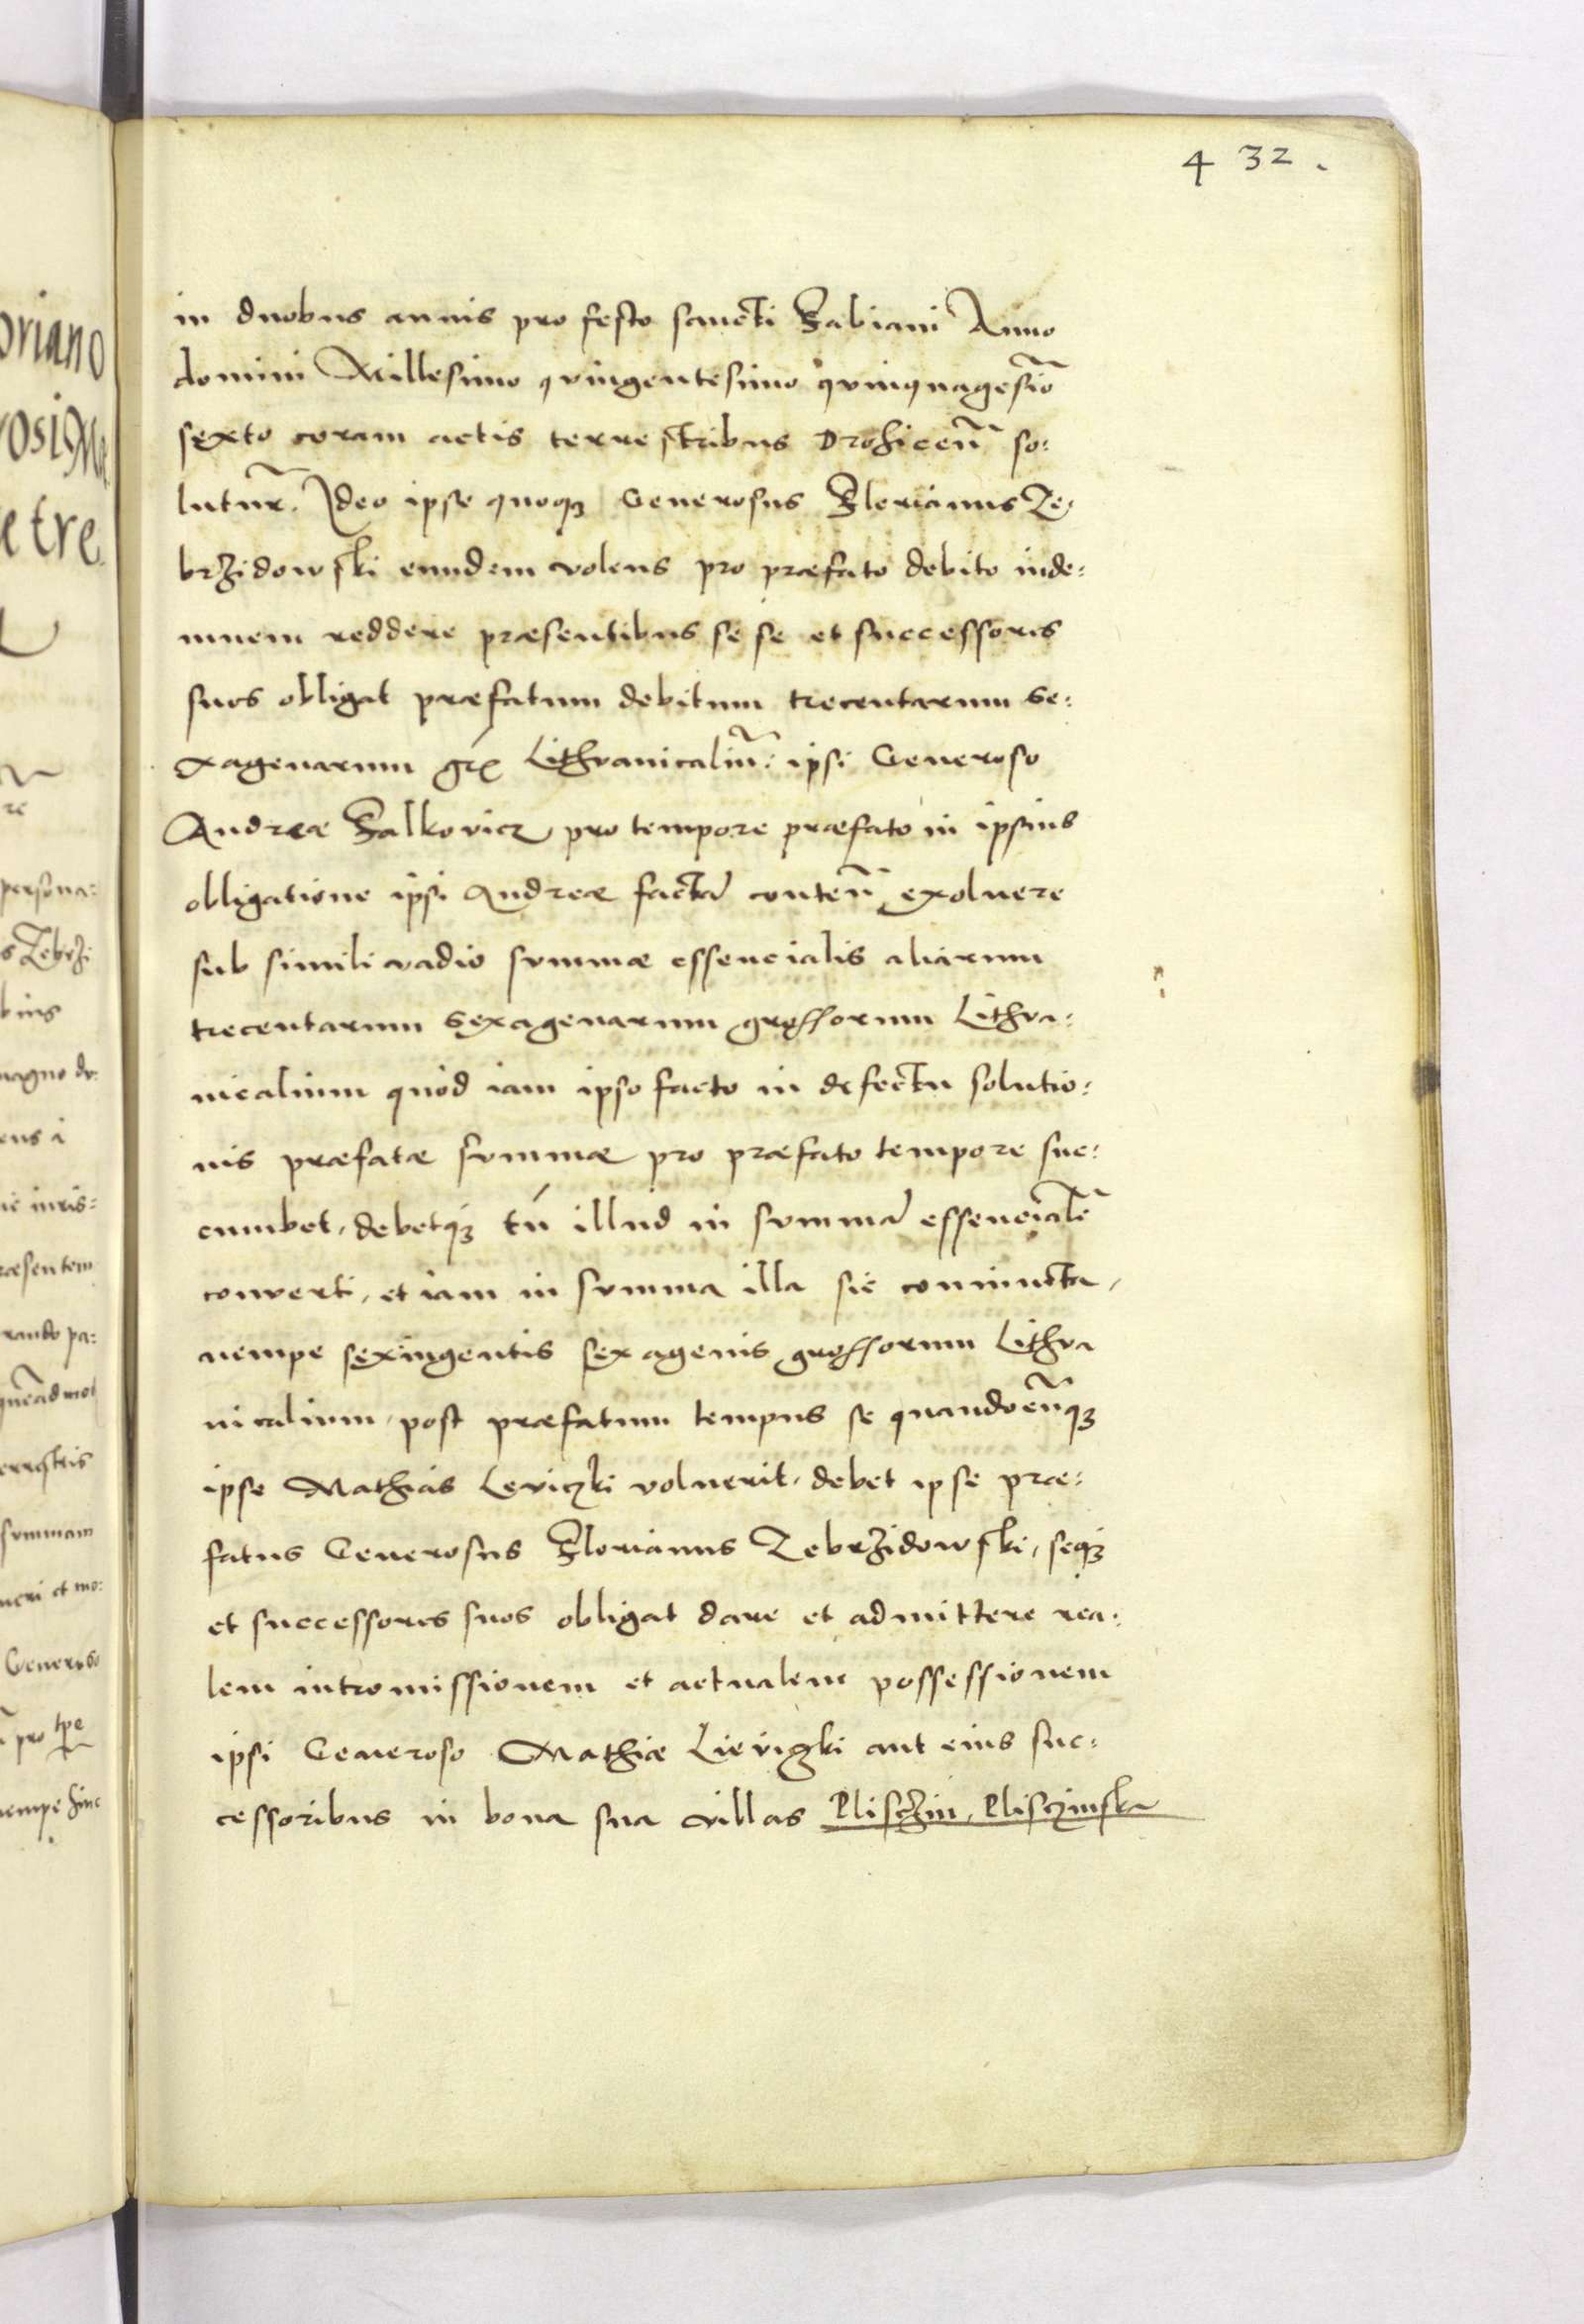 432.
in duobus annis pro festo sancti Fabiani Anno
domini Millesimo qvingentesimo qvinquagesĩo
sexto coram actis terrestribus Drohiceñ so:
lutur̃. Ideo ipse quoqꝫ Generosus Florianus Ze:
brzidowski eundem volens pro præfato debito inde:
mnem reddere præsentibus se se et successores
suos obligat præfatum debitum trecentarum se:
xagenarum gr̃ Lithvanicaliũ: ipsi Generoso
Andreæ Falkovicz pro tempore præfato in ipsius
obligatione ipsi Andreæ facta conteñ exoluere
sub simili vadio svmmæ essencialis aliarum
trecentarum sexagenarum grossorum Lithva:
nicalium quod iam ipso facto in defectu solutio:
nis præfatæ svmmæ pro præfato tempore suc:
cumbet, debetqꝫ tñ illud in svmmã essencialẽ
converti, et iam in svmma illa sic coniuncta,
nempe sexingentis sexagenis grossorum Lithva
nicalium, post præfatum tempus se quandocũqꝫ
ipse Mathias Leviczki voluerit, debet ipse præ:
fatus Generosus Florianus Zebrzidowski, seqꝫ
et successores suos obligat dare et admittere rea:
lem intromissionem et actualem possessionem
ipsi Generoso Mathiæ Lievigki aut eius suc:
cessoribus in bona sua villas Plisczin, Plisczinska
oriano
persona:
s Zebrzi
magno do:
ræsentem
rando pa:
errestris
svmmam
Generoso
pro tpe